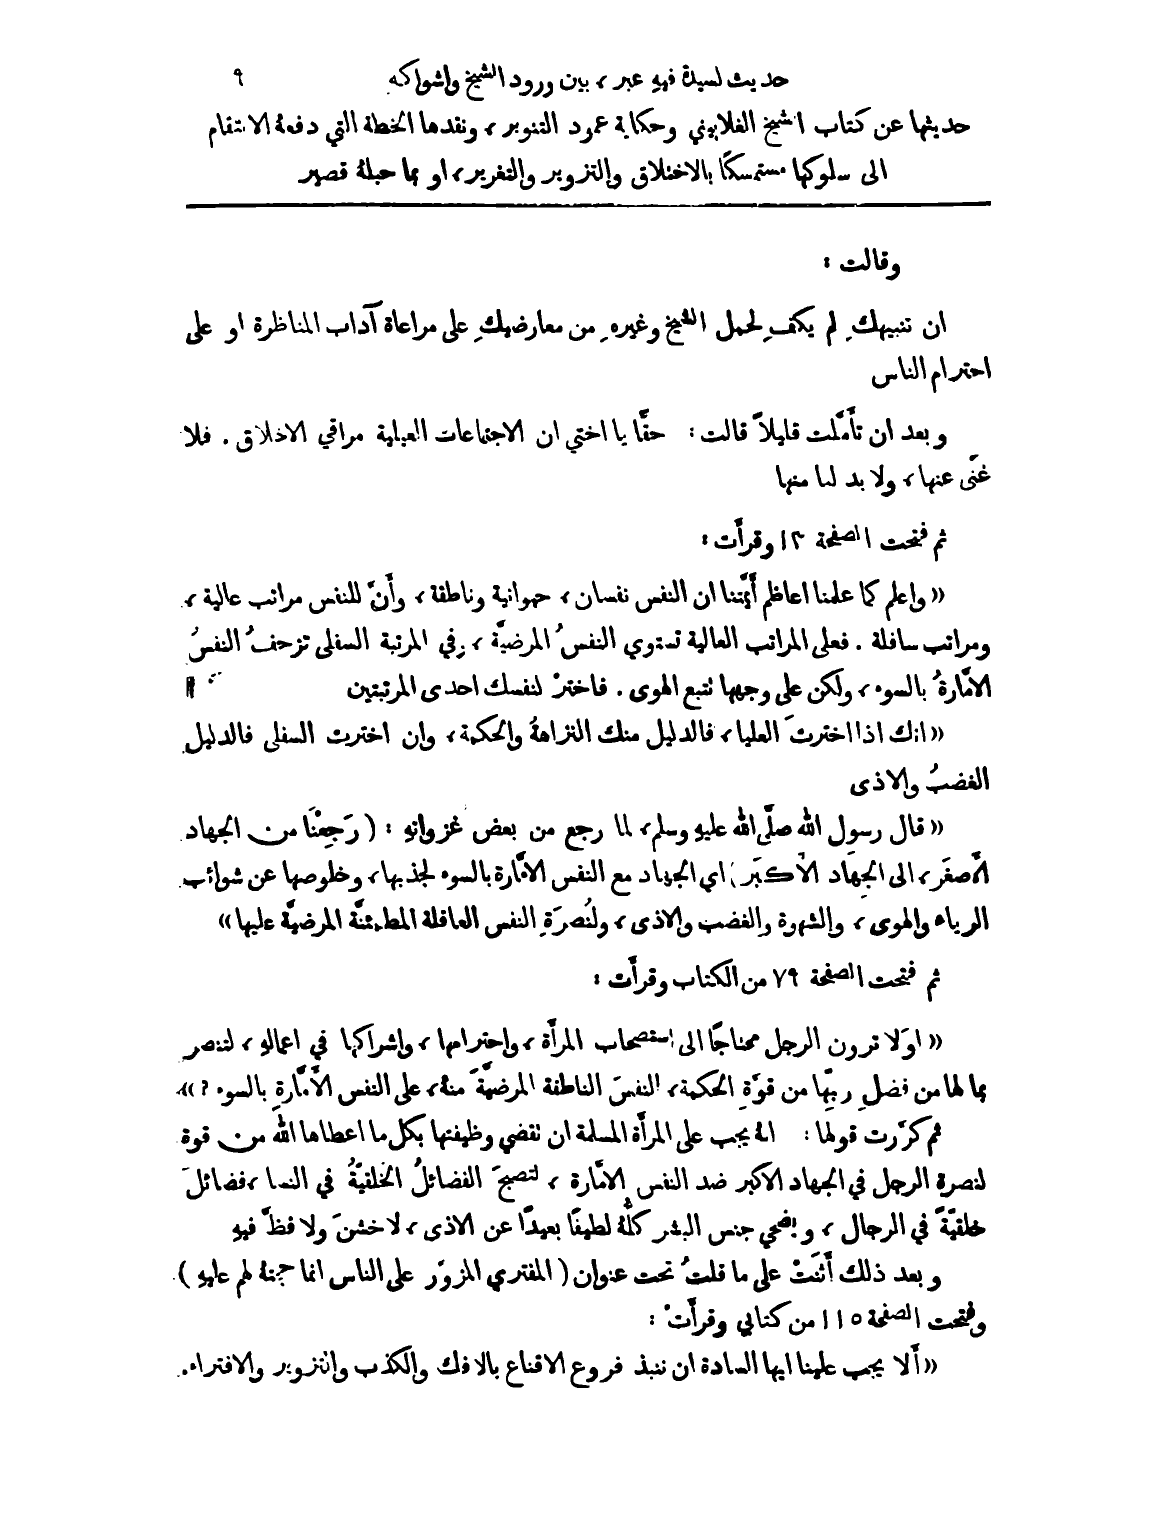 حديث لسيدة فيهِ عبر ، بين ورود الشيخ واشواكه ٩
حديثها عن كتاب الشيخ الغلاييني وحكاية عمود التنوير ، ونقدها الخطة التي دفعهُ الانتقام
الى سلوكها مستمسكًا بالاختلاق والتزوير والتغرير ، او بما حيلهُ قصير
وقالت :
ان تنبيهكِ لم يكفِ لحمل الشيخ وغيرهِ من معارضيكِ على مراعاة آداب المناظرة او على
احترام الناس
وبعد ان تأَمَّلت قليلاً قالت : حقًّا يا اختي ان الاجتماعات العيلية مراقي الاخلاق . فلا
غنًى عنها ، ولا بد لنا منها
ثم فتحت الصفحة ١٢ وقرأَت :
« واعلم كما علمنا اعاظم أَئمَّتنا ان النفس نفسان ، حيوانية وناطقة ، وأَنَّ للنفس مراتب عالية ،
ومراتب سافلة . فعلى المراتب العالية تستوي النفسُ المرضيَّة ، وفي المرتبة السفلى تزحفُ النفسُ
الامَّارةُ بالسوء ، ولكن على وجهها تتبع الهوى . فاخترْ لنفسك احدى المرتبتين
« انك اذا اخترتَ العليا ، فالدليل منك النزاهةُ والحكمة ، وان اخترت السفلى فالدليل
الغضبُ والاذى
« قال رسول الله صلَّى الله عليهِ وسلم ، لما رجع من بعض غزواتهِ : ( رَجعْنَا من الجهاد
الأَصغَر ، الى الجِهَاد الأَكبَر ) اي الجهاد مع النفس الامَّارة بالسوء لجذبها ، وخلوصها عن شوائب
الرياء والهوى ، والشهوة والغضب والاذى ، ولنُصرَةِ النفس العاقلة المطمئنَّة المرضيَّة عليها »
ثم فتحت الصفحة ٧٩ من الكتاب وقرأَت :
« اوَلا ترون الرجل محتاجًا الى استصحاب المرأَة ، واحترامها ، واشراكها في اعمالهِ ، لتنصر
بما لها من فضلِ ربِّها من قوَّةِ الحكمة ، النفسَ الناطقة المرضيَّةَ منهُ ، على النفس الأَمَّارةِ بالسوء ؟ »
ثم كرَّرت قولها : انهُ يجب على المرأَة المسلمة ان تقضي وظيفتها بكل ما اعطاها الله من قوة
لنصرة الرجل في الجهاد الاكبر ضد النفس الامَّارة ، لتصبحَ الفضائلُ الخلقيَّةُ في النسا ، فضائلَ
خلقيَّةً في الرجال ، ويضحي جنس البشر كلُّهُ لطيفًا بعيدًا عن الاذى ، لا خشنَ ولا فظَّ فيهِ
وبعد ذلك أَثنَتْ على ما قلتُ تحت عنوان ( المفتري المزوّر على الناس انما حجتهُ لهم عليهِ )
وفتحت الصفحة ١١٥ من كتابي وقرأَتْ :
« أَلا يجب علينا ايها السادة ان ننبذ فروع الاقناع بالافك والكذب والتزوير والافتراء